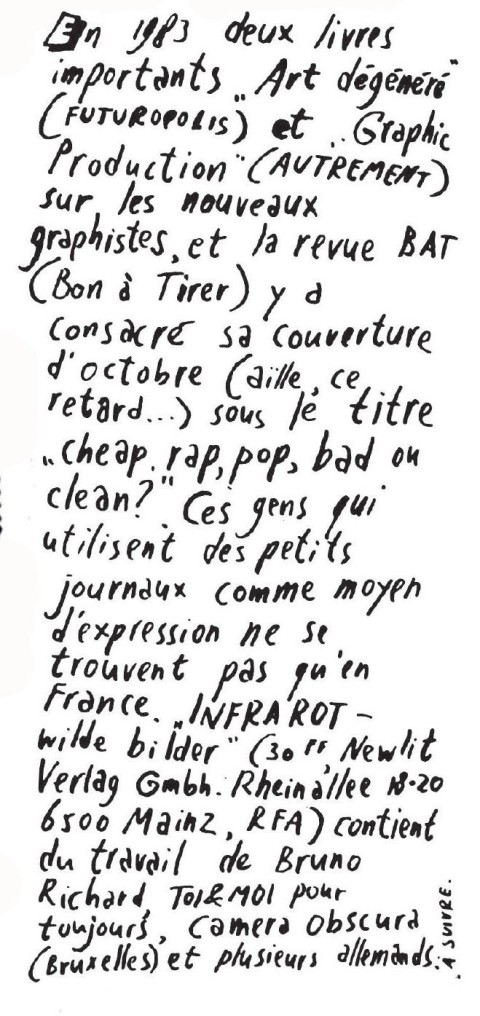 En 1983 deux livres
importants „Art dégénéré"
(FUTUROPOLIS) et „Graphic
Production" (AUTREMENT)
sur les nouveaux
graphistes, et la revue BAT
(Bon à Tirer) y a
consacré sa couverture
d'octobre (aïlle, ce
retard...) sous le titre
„cheap, rap, pop, bad ou
clean?" Ces gens qui
utilisent des petits
journaux comme moyen
d'expression ne se
trouvent pas qu'en
France. „INFRAROT –
wilde bilder" (30 FF, Newlit
Verlag Gmbh. Rheinallee 18-20
6500 Mainz, RFA) contient
du travail de Bruno
Richard, TOI&MOI pour
toujours, Camera Obscura
(Bruxelles) et plusieurs allemands.
A SUIVRE.